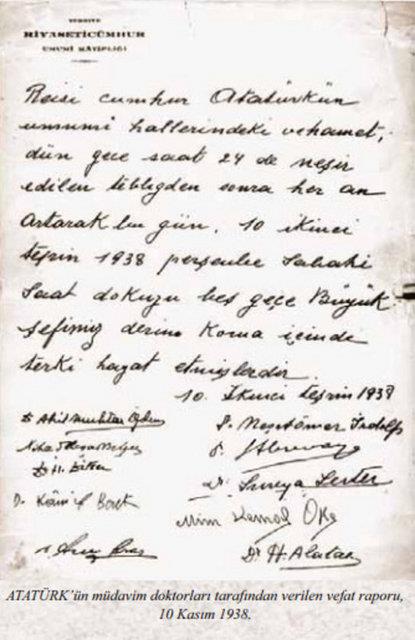 TÜRKİYE
RİYASETİCÜMHUR
UMUMÎ KÂTİPLİĞİ
Reisi cumhur Atatürkün
umumî hallerindeki vehamet,
dün gece saat 24 de neşir
edilen tebliğden sonra her an
artarak bu gün, 10 ikinci
teşrin 1938 perşenbe sabahi
saat dokuzu beş geçe Büyük
şefimiz derin koma içinde
terki hayat etmişlerdir.
10. İkinci teşrin 1938
Dr Akil Muhtar Özden
Dr. Neşetömer İrdelp
Dr. Süreya Serter
Mim Kemal Öke
Dr H. Alataş
ATATÜRK'ün müdavim doktorları tarafından verilen vefat raporu,
10 Kasım 1938.